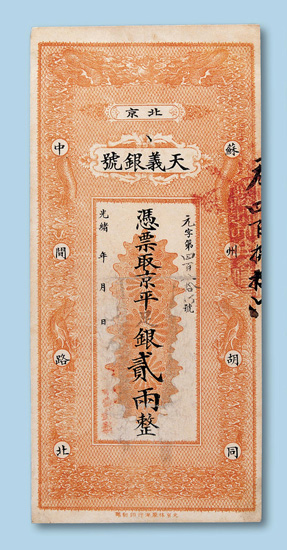 京北
號銀義天
蘇州胡同
中間路北
元字第四百
號
憑票取京平足銀貳兩整
光緒 年 月 日